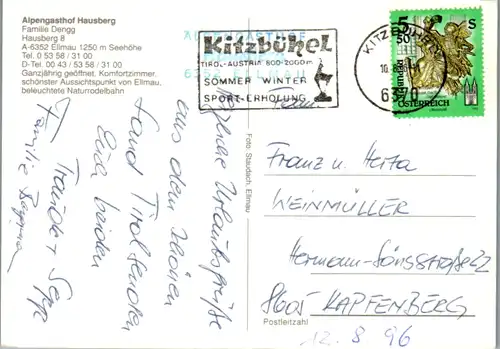 Alpengasthof Hausberg
Familie Dengg
Hausberg 8
A-6352 Ellmau 1250 m Seehöhe
Tel. 0 53 58 / 31 00
D-Tel. 00 43 / 53 58 / 31 00
Ganzjährig geöffnet, Komfortzimmer,
schönster Aussichtspunkt von Ellmau,
beleuchtete Naturrodelbahn
Kitzbühel
TIROL-AUSTRIA 800-2000m
SOMMER WINTER
SPORT-ERHOLUNG
KITZBÜHEL
6370
5 S
ÖSTERREICH
Urlaubsgrüße
aus dem schönen
Land Tirol senden
Euch beiden
Familie
Foto: Staudach, Ellmau
Franz u. Herta
WEINMÜLLER
8605 KAPFENBERG
Postleitzahl
12. 8 96